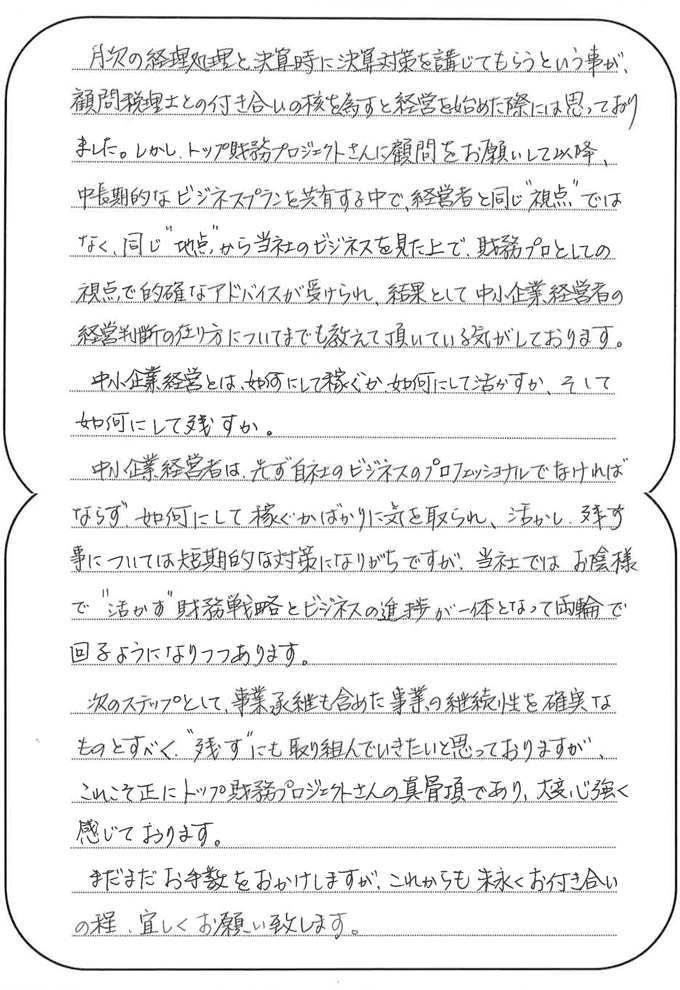 月次の経理処理と決算時に決算対策を講じてもらうという事が、
顧問税理士との付き合いの核を為すと経営を始めた際には思っており
ました。しかし、トップ財務プロジェクトさんに顧問をお願いして以降、
中長期的なビジネスプランを共有する中で、経営者と同じ"視点"では
なく、同じ"地点"から当社のビジネスを見た上で、財務プロとしての
視点で的確なアドバイスが受けられ、結果として中小企業経営者の
経営判断の在り方についてまでも教えて頂いている気がしております。
中小企業経営とは、如何にして稼ぐか、如何にして活かすか、そして
如何にして残すか。
中小企業経営者は、先ず自社のビジネスのプロフェッショナルでなければ
ならず、如何にして稼ぐかばかりに気を取られ、活かし、残す
事については短期的な対策になりがちですが、当社ではお陰様
で"活かす"財務戦略とビジネスの進捗が一体となって両輪で
回るようになりつつあります。
次のステップとして、事業承継も含めた事業の継続性を確実な
ものとすべく、"残す"にも取り組んでいきたいと思っておりますが、
これこそ正にトップ財務プロジェクトさんの真骨頂であり、大変心強く
感じております。
まだまだお手数をおかけしますが、これからも末永くお付き合い
の程、宜しくお願い致します。